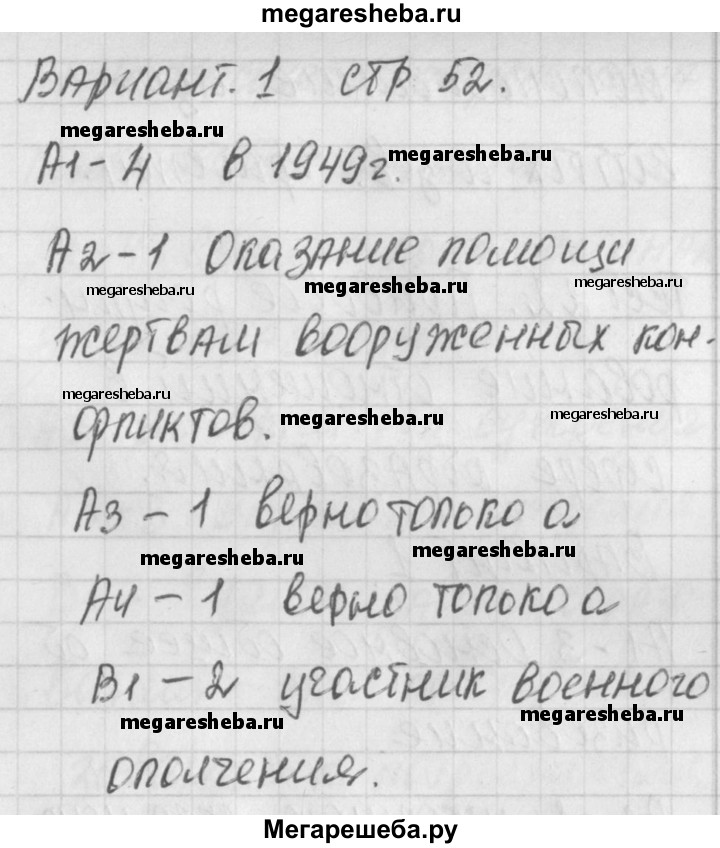 megaresheba.ru
Вариант. 1 стр 52.
megaresheba.ru
А1-4 в 1949г.
megaresheba.ru
А2-1 Оказание помощи
megaresheba.ru megaresheba.ru megaresheba.ru
жертвам вооруженных кон-
megaresheba.ru megaresheba.ru megaresheba.ru
фликтов.
А3-1 верно только а
megaresheba.ru megaresheba.ru
А4-1 верно только а
В1-2 участник военного
megaresheba.ru megaresheba.ru
ополчения.
Мегарешеба.ру